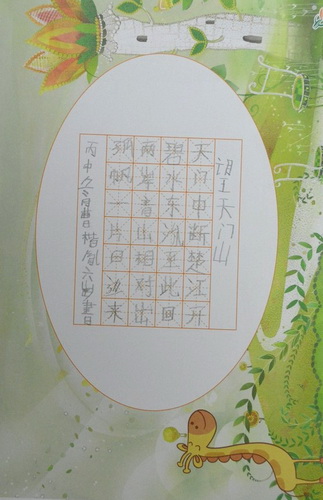 望天门山
天门中断楚江开
碧水东流至此回
两岸青山相对出
孤帆一片日边来
丙申冬月曹楷胤六岁書